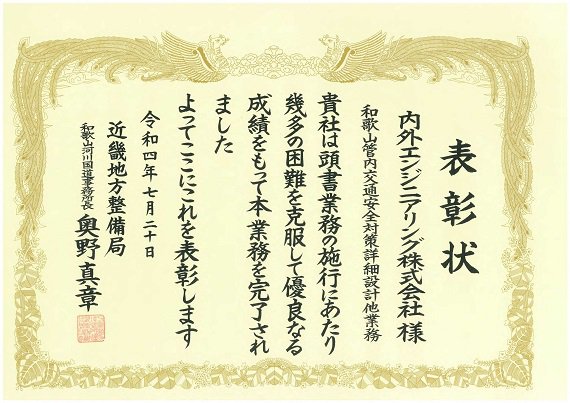 表彰状
内外エンジニアリング株式会社 様
和歌山管内交通安全対策詳細設計他業務
貴社は頭書業務の施行にあたり
幾多の困難を克服して優良なる
成績をもって本業務を完了され
ました
よってここにこれを表彰します
令和四年七月二十日
近畿地方整備局
和歌山河川国道事務所長 奥野真章